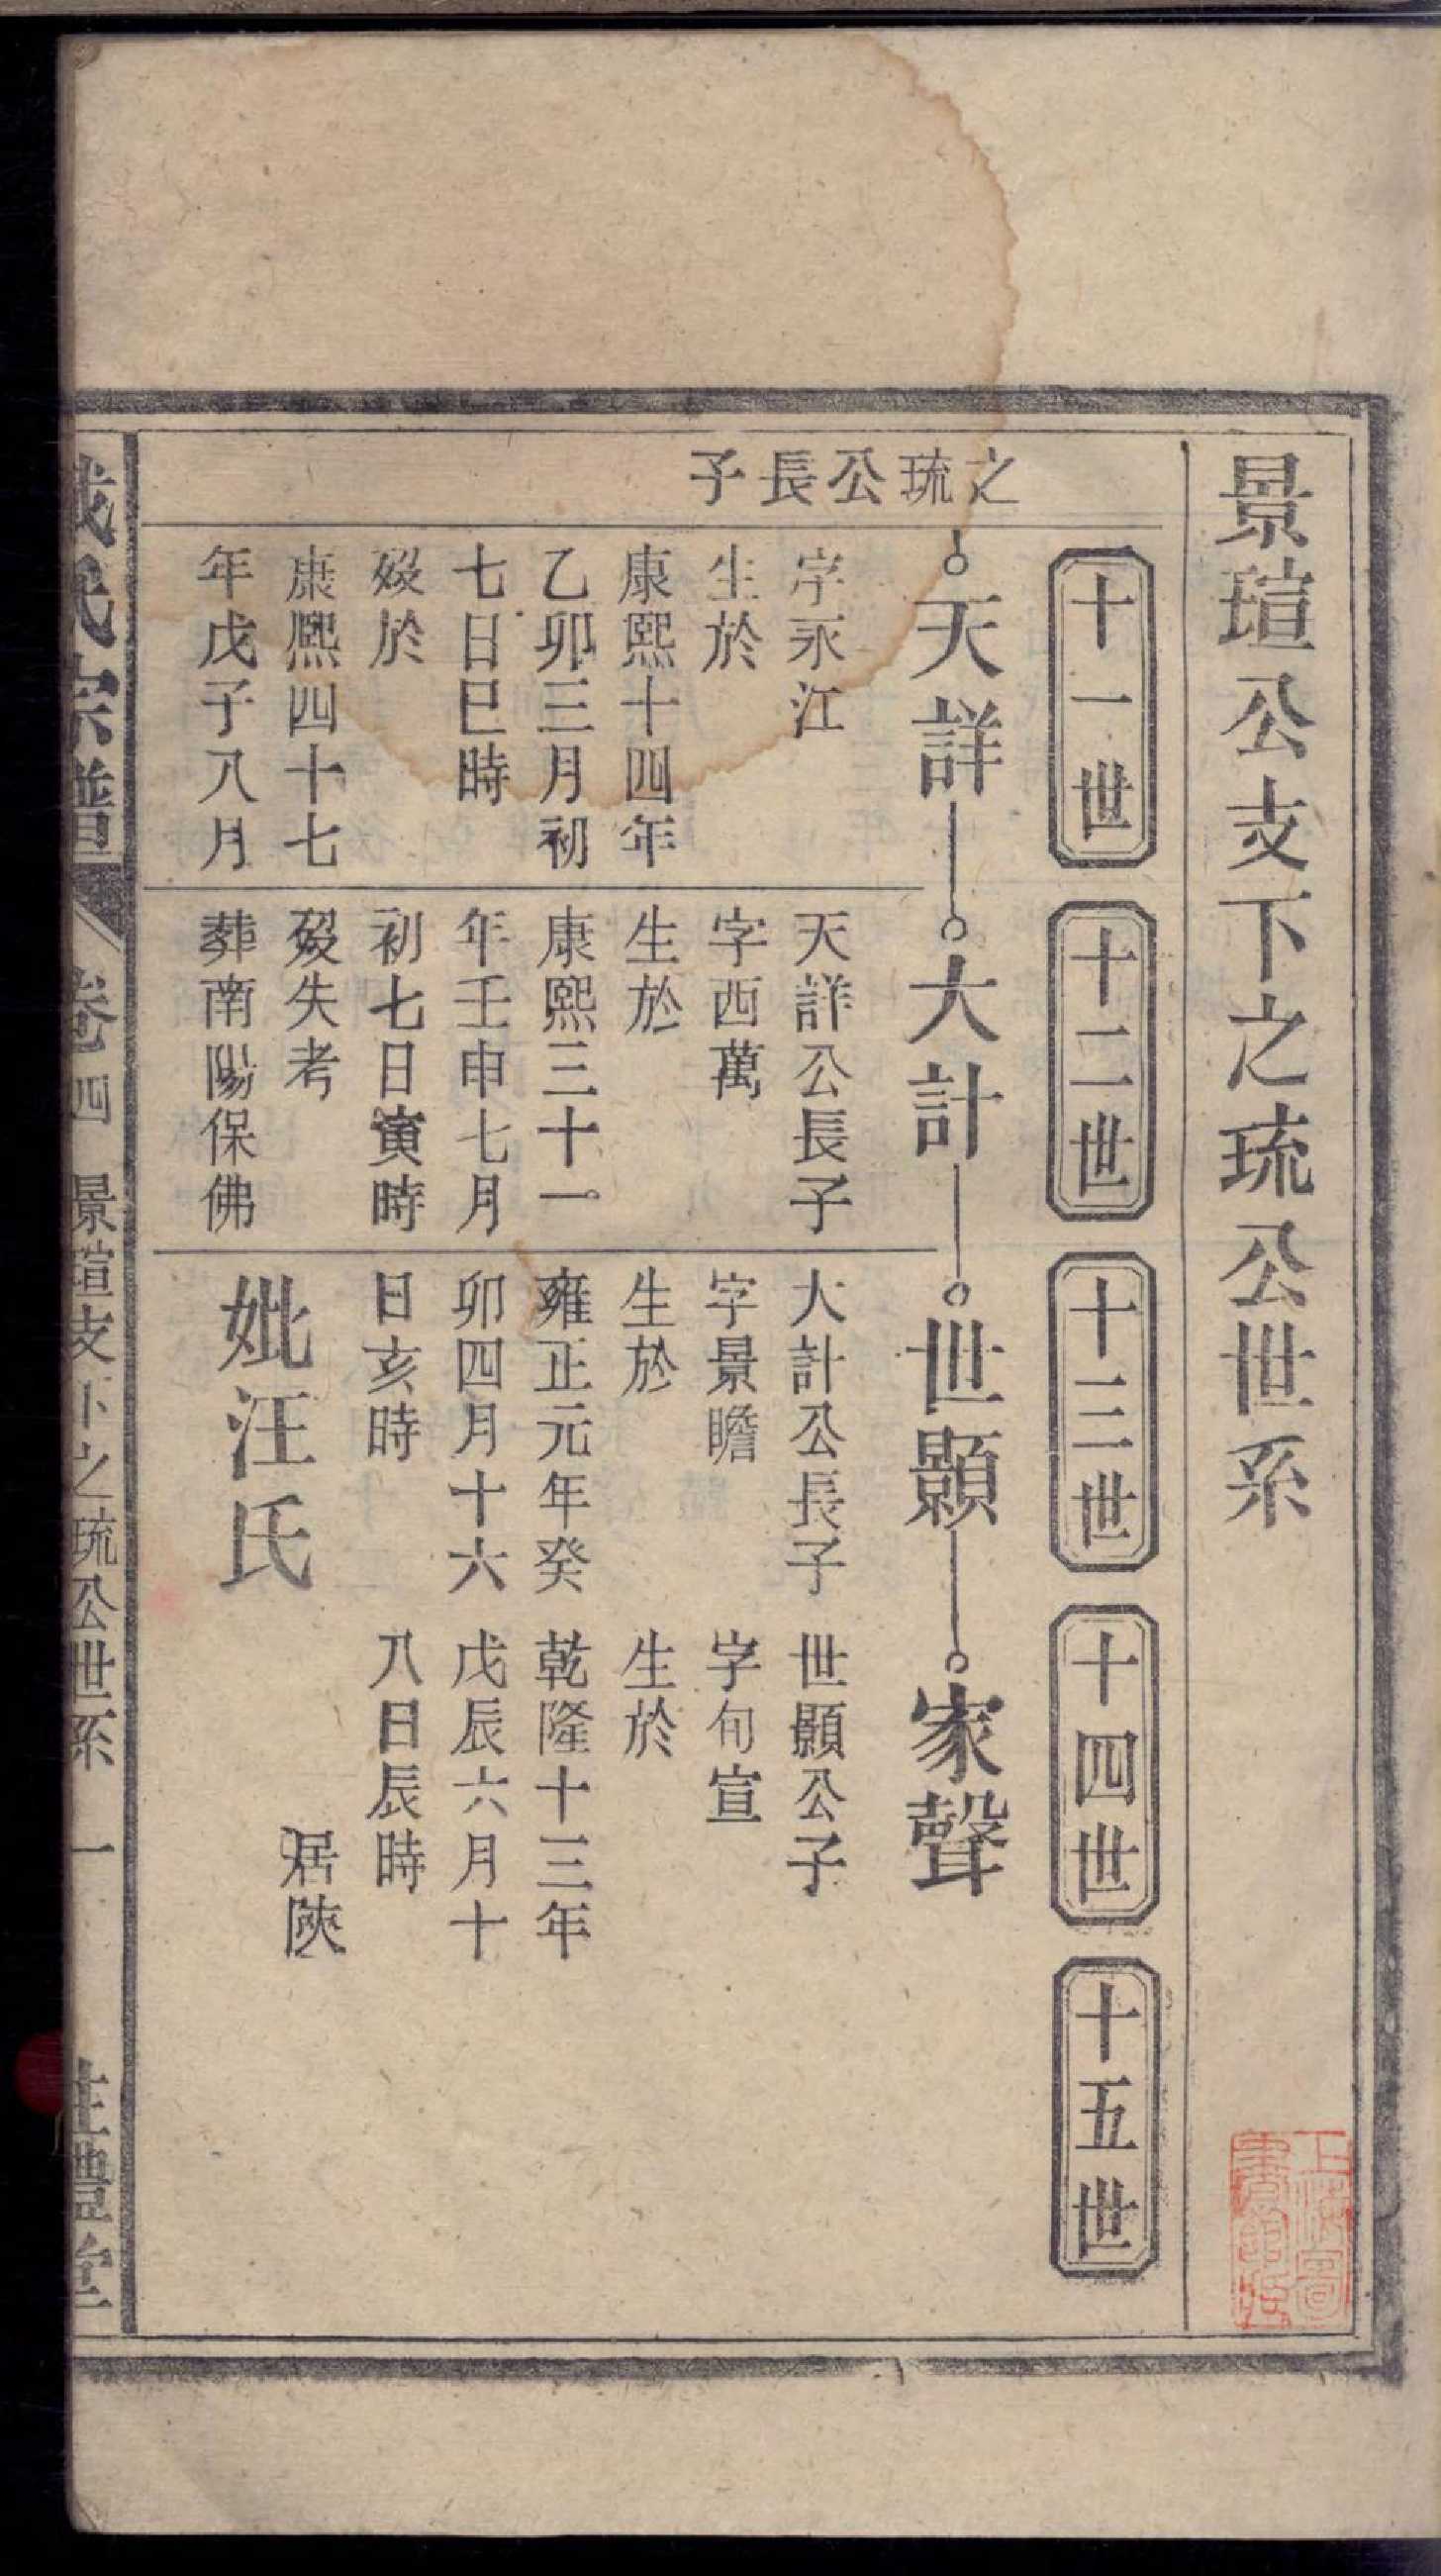 景瑄公支下之琉公世系
十一世
十二世
十三世
十四世
十五世
之琉公長子
天詳
字永江
生於
康熙十四年
乙卯三月初
七日巳時
歿於
康熙四十七
年戊子八月
大計
天詳公長子
字西萬
生於
康熙三十一
年壬申七月
初七日寅時
歿失考
葬南陽保佛
世顯
大計公長子
字景瞻
生於
雍正元年癸
卯四月十六
日亥時
妣汪氏
家聲
世顯公子
字旬宣
生於
乾隆十三年
戊辰六月十
八日辰時
居陝
氏宗譜
卷四
景瑄支下之琉公世系
一
禮堂